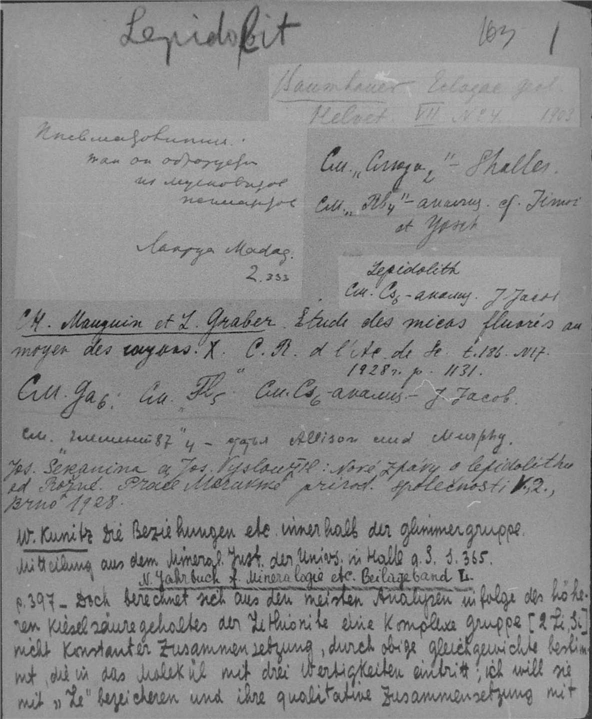 Lepidolit
163 1
Baumhauer Eclogae geol.
Helvet. VII N 24. 1903
Пневматолиты:
как он образует
из мусковитов
пегматитов
Лакруа Мадаг.
2. 333
См. „Слюда 2" – Shaller.
См. „Rb4" – анализ. cf. Jimori
et Yosh
Lepidolith
См. Cs6 – анализ. J Jacob
CH. Mauguin et L. Graber. Étude des micas fluorés au
moyen des rayons. X. C. R. d l'Ac. de Sc. t. 186. N17.
1928 г. p. 1131.
См. Ga6; См. „Fl5" См. Cs6 – анализ – J Jacob.
см. 87" 4 – Allison und Murphy.
Jos. Sekanina a Jos. Vyslouzil: Nové zpávy o lepidolithu
od Rožné. Prace Moravské přirod. společnosti V, 2.,
Brno 1928.
W. Kunitz Die Beziehungen etc. innerhalb der glimmergruppe.
Mitteilung aus dem Mineral. Inst. der Univers. in Halle a. S. S. 365.
N. Jahrbuch f. Mineralogie etc. Beilageband L.
p. 397 – Doch berechnet sich aus den meisten Analysen infolge des höhe-
ren Kieselsäuregehaltes der Lithionite eine Komplexe gruppe [2 Li, Si]
nicht Konstanter Zusammensetzung, durch obige gleichgewichte bestim-
mt, die in das Molekül mit drei Wertigkeiten eintritt; ich will sie
mit „Le" bezeicheren und ihre qualitative Zusammensetzung mit